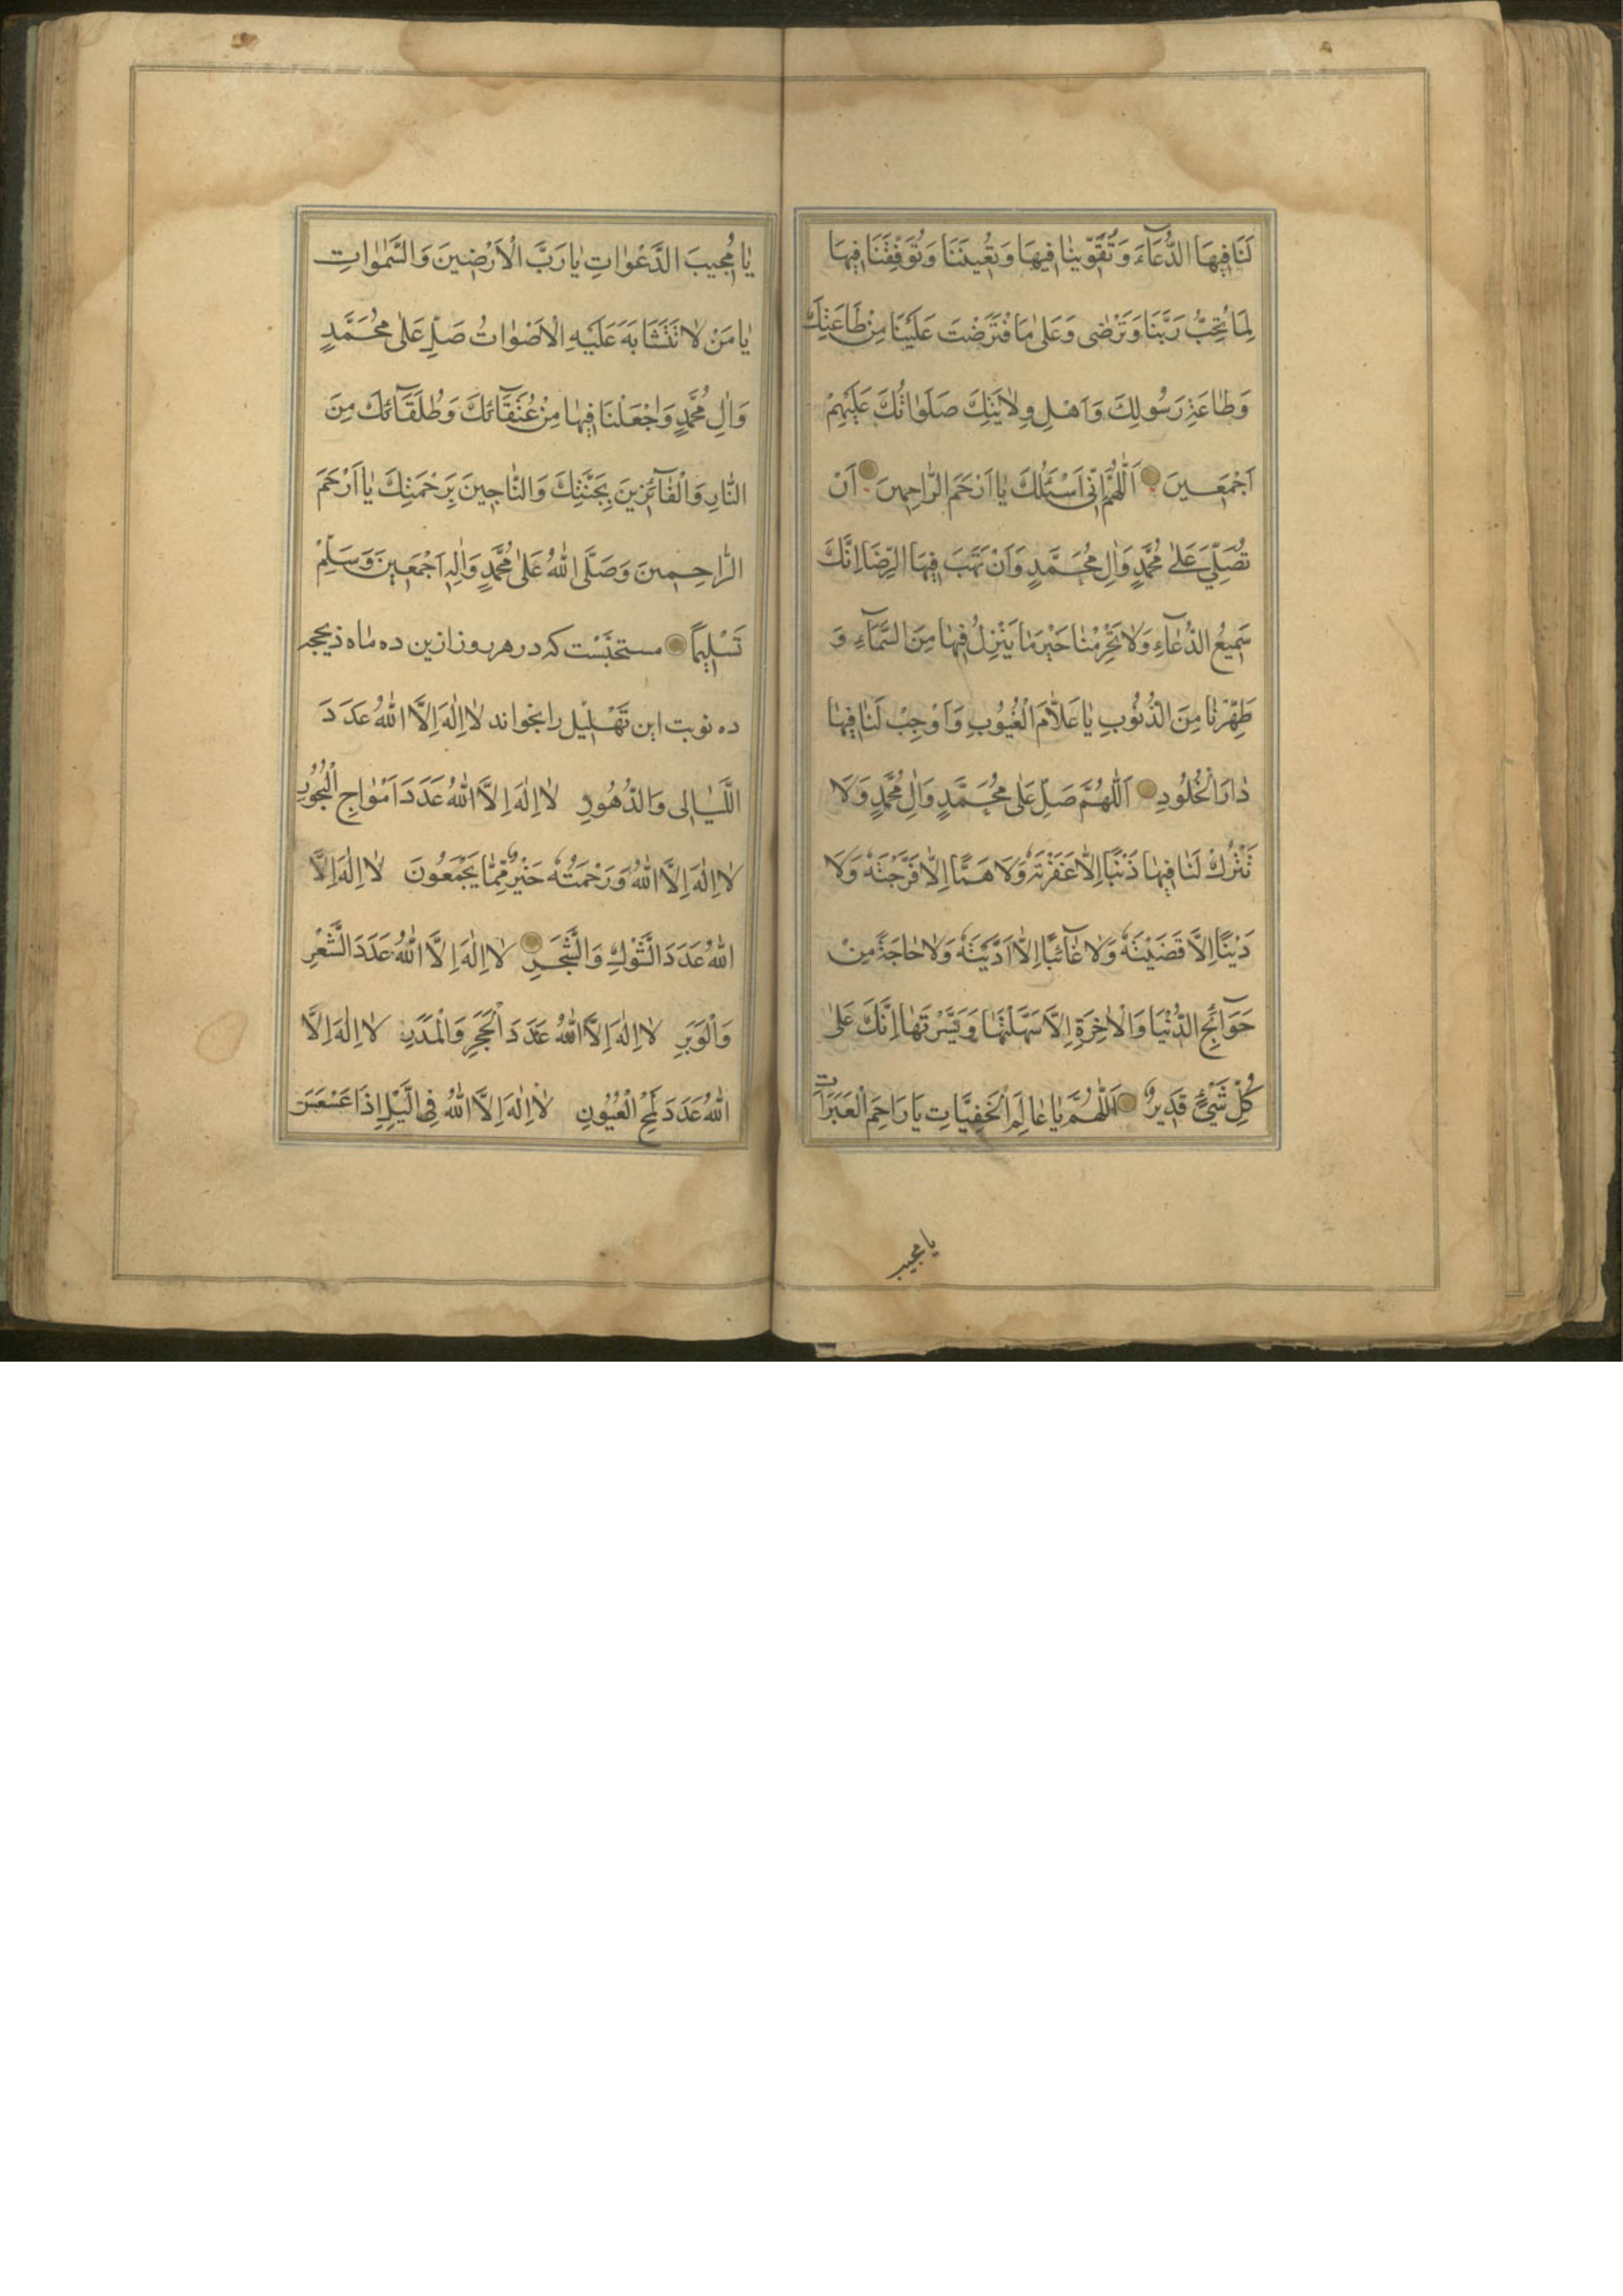 لَنَا فِيهَا الدُّعَآءَ وَتُقَوِّينٰا فِيهَا وَتُعِينَنَا وَتُوَفِّقَنَا فِيهَا
لِمَا تُحِبُّ رَبَّنَا وَتَرْضٰى وَعَلىٰ مَا فْتَرَضْتَ عَلَيْنَا مِنْ طَاعَتِكَ
وَطٰاعَةِ رَسُولِكَ وَاَهْلِ وِلاٰيَتِكَ صَلَوٰاتُكَ عَلَيْهِمْ
اَجْمَعِينَ اَللّٰهُمَّ اِنّٖى اَسْئَلُكَ يٰا اَرْحَمَ الرّٰاحِمِينَ اَنْ
تُصَلِّيَ عَلىٰ مُحَمَّدٍ وَاٰلِ مُحَمَّدٍ وَاَنْ تَهَبَ فِيهَا الرِّضَا اِنَّكَ
سَمِيعُ الدُّعٰآءِ وَلاٰ تَحْرِمْنٰا خَيْرَ مٰا يَنْزِلُ فِيهٰا مِنَ السَّمٰآءِ وَ
طَهِّرْنٰا مِنَ الذُّنُوبِ يٰا عَلاّٰمَ الْغُيُوبِ وَاَوْجِبْ لَنٰا فِيهٰا
دٰارَ الْخُلُودِ اَللّٰهُمَّ صَلِّ عَلىٰ مُحَمَّدٍ وَاٰلِ مُحَمَّدٍ وَلاَ
تَتْرُكْ لَنٰا فِيهٰا ذَنْبًا اِلاّٰ غَفَرْتَهُ وَلاَ هَمًّا اِلاّٰ فَرَّجْتَهُ وَلاَ
دَيْنًا اِلاَّ قَضَيْتَهُ وَلاٰ غٰآئبًا اِلاّٰ اَدَّيْتَهُ وَلاٰ حٰاجَةً مِنْ
حَوَآئِجِ الدُّنْيَا وَالْاٰخِرَةِ اِلاَّ سَهَّلْتَهٰا وَيَسَّرْتَهٰا اِنَّكَ عَلىٰ
كُلِّ شَيْءٍ قَدِيرٌ اَللّٰهُمَّ يٰا عٰالِمَ الْخَفِيَّاتِ يَا رَاحِمَ الْعَبَرَاتِ
يا مجيب
يٰا مُجِيبَ الدَّعْوٰاتِ يٰا رَبَّ الْاَرْضِينَ وَالسَّمٰوٰاتِ
يٰا مَنْ لاٰ تَتَشَابَهُ عَلَيْهِ الْاَصْوٰاتُ صَلِّ عَلىٰ مُحَمَّدٍ
وَاٰلِ مُحَمَّدٍ وَاجْعَلْنَا فِيهٰا مِنْ عُتَقَآئكَ وَطُلَقَآئكَ مِنَ
النّٰارِ وَالْفٰآئزِينَ بِجَنَّتِكَ وَالنّٰاجِينَ بِرَحْمَتِكَ يٰا اَرْحَمَ
الرّٰاحِمِينَ وَصَلَّى اللّٰهُ عَلىٰ مُحَمَّدٍ وَاٰلِهِ اَجْمَعِينَ وَسَلِّمْ
تَسْلِيمًا مستحبّست كه در هر روز ازين ده ماه ذيحجه
ده نوبت اين تَهْلِيل را بخواند لاٰ اِلٰهَ اِلاَّ اللّٰهُ عَدَدَ
اللَّيٰالِى وَالدُّهُورِ لاٰ اِلٰهَ اِلاَّ اللّٰهُ عَدَدَ اَمْوٰاجِ الْبُحُورِ
لاٰ اِلٰهَ اِلاَّ اللّٰهُ وَرَحْمَتُهُ خَيْرٌ مِمّٰا يَجْمَعُونَ لاٰ اِلٰهَ اِلاَّ
اللّٰهُ عَدَدَ الشَّوْكِ وَالشَّجَرِ لاٰ اِلٰهَ اِلاَّ اللّٰهُ عَدَدَ الشَّعْرِ
وَالْوَبَرِ لاٰ اِلٰهَ اِلاَّ اللّٰهُ عَدَدَ الْحَجَرِ وَالْمَدَرِ لاٰ اِلٰهَ اِلاَّ
اللّٰهُ عَدَدَ لَمْحِ الْعُيُونِ لاٰ اِلٰهَ اِلاَّ اللّٰهُ فِى الَّيْلِ اِذَا عَسْعَسَ